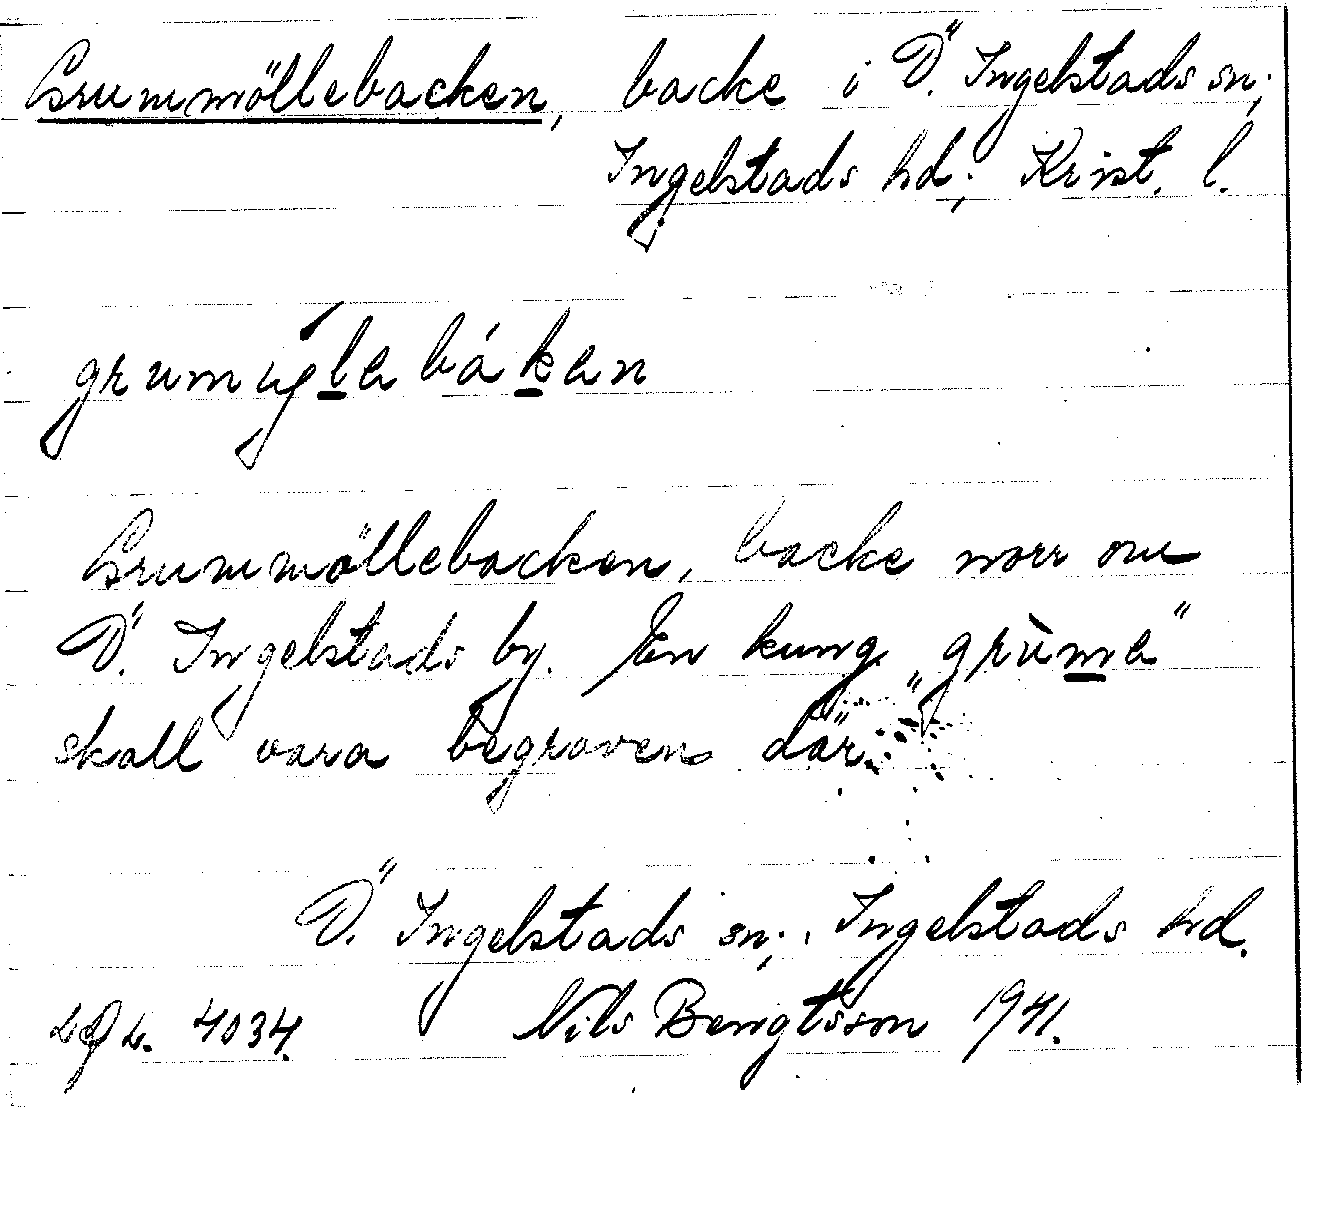 Grummöllebacken, backe i Ö. Ingelstads sn;
Ingelstads hd; Krist. l.
Grummöllebacken, backe norr om
Ö. Ingelstads by. En kung „grùma”
skall vara begraven där.
Ö. Ingelstads sn; Ingelstads hd.
4034. Nils Bengtsson 1941.